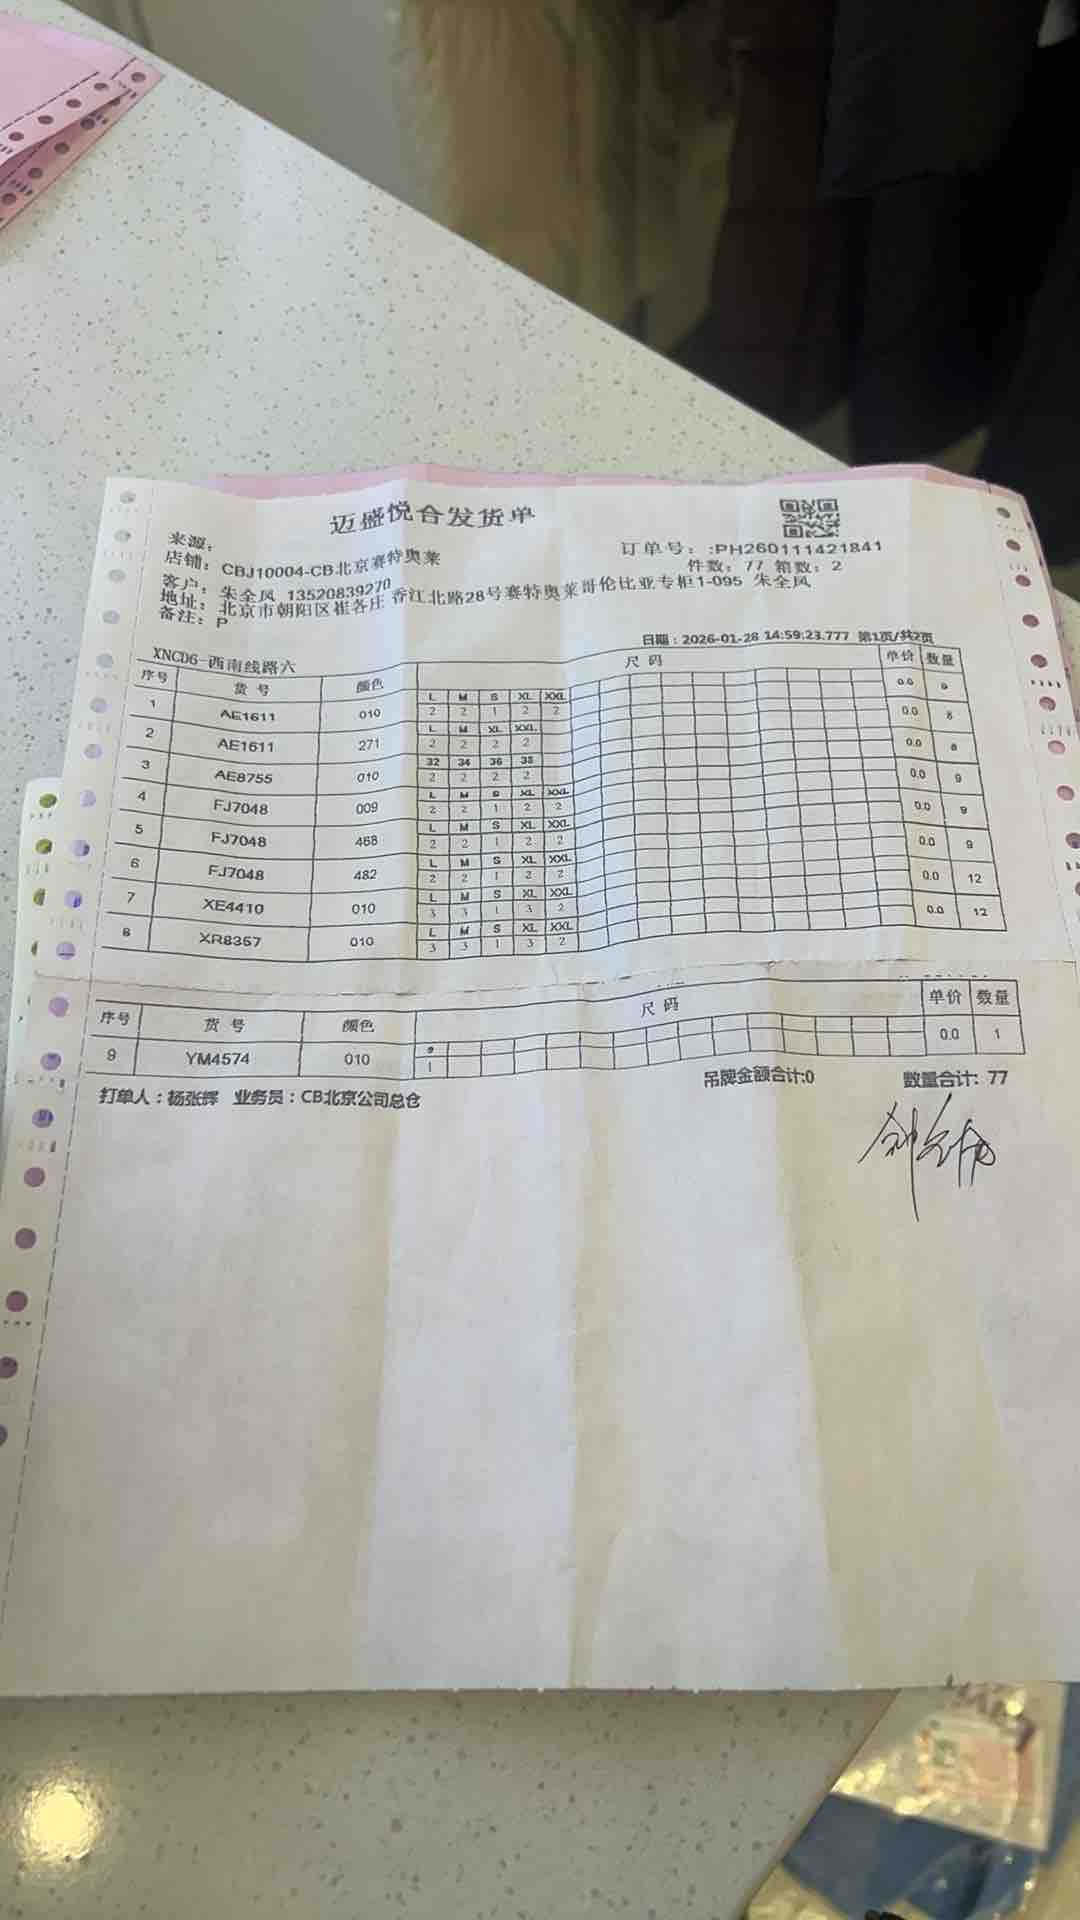 迈盛悦合发货单
来源:
订单号: :PH260111421841
店铺: CBJ10004-CB北京赛特奥莱
件数: 77 箱数: 2
客户: 朱全凤 13520839270
地址: 北京市朝阳区崔各庄 香江北路28号赛特奥莱哥伦比亚专柜1-095 朱全凤
备注: P
日期：2026-01-28 14:59:23.777 第1页/共2页
XNCD6-西南线路六
序号 货号 颜色 尺码 单价 数量
L M S XL XXL
1 AE1611 010 2 2 1 2 2 0.0 9
L M XL XXL
2 AE1611 271 2 2 2 2 0.0 8
32 34 36 38
3 AE8755 010 2 2 2 2 0.0 8
L M S XL XXL
4 FJ7048 009 2 2 1 2 2 0.0 9
L M S XL XXL
5 FJ7048 468 2 2 1 2 2 0.0 9
L M S XL XXL
6 FJ7048 482 2 2 1 2 2 0.0 9
L M S XL XXL
7 XE4410 010 3 3 1 3 2 0.0 12
L M S XL XXL
8 XR8357 010 3 3 1 3 2 0.0 12
序号 货号 颜色 尺码 单价 数量
9 YM4574 010 1 0.0 1
吊牌金额合计:0 数量合计: 77
打单人：杨张辉 业务员：CB北京公司总仓